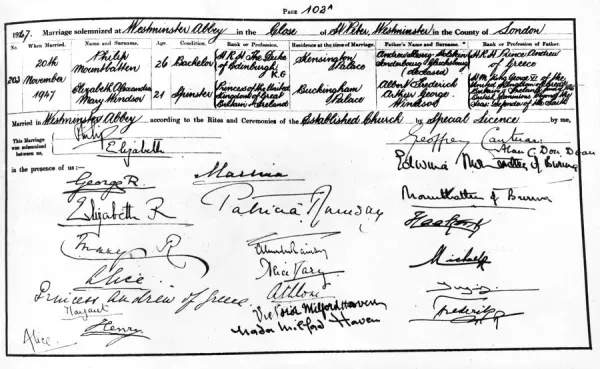 PAGE 102A
1947. Marriage solemnized at Westminster Abbey in the Close of St Peter, Westminster in the County of London
No. When Married. Name and Surname. Age. Condition. Rank or Profession. Residence at the time of Marriage. Father's Name and Surname. Rank or Profession of Father.
203 20th November 1947 Philip Mountbatten 26 Bachelor H R H The Duke of Edinburgh K.G Kensington Palace Andrew (deceased) H R H Prince Andrew of Greece
Elizabeth Alexandra Mary Windsor 21 Spinster Princess of the United Kingdom of Great Britain & Ireland Buckingham Palace Albert Frederick Arthur George Windsor H.M. King George VI of the United Kingdom of Great Britain & Ireland
Married in Westminster Abbey according to the Rites and Ceremonies of the Established Church by Special Licence by me,
This Marriage was solemnized between us,
Philip
Elizabeth
Geoffrey Cantuar:
Alan C. Don, Dean
in the presence of us:—
George R.
Marina
Edwina Mountbatten of Burma
Elizabeth R
Patricia Ramsay
Mountbatten of Burma
Mary R
Alexander Ramsay
Haakon
Alice
Alice Mary
Michael
Princess Andrew of Greece
Athlone
Margaret
Victoria Milford Haven
Henry
Nada Milford Haven
Frederik
Alice